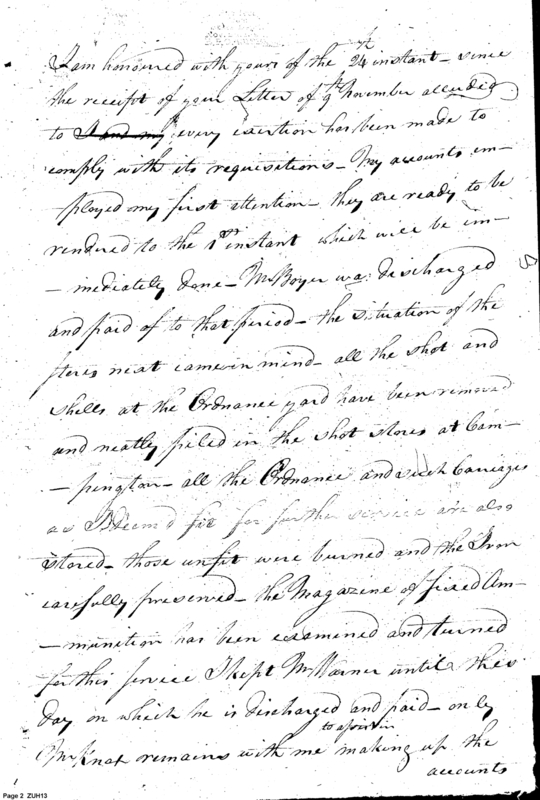 I am honoured with yours of the 24th instant - since
the receipt of your Letter of 9th November alluded
to I and my every exertion has been made to
comply with its requisitions - My accounts em-
ployed my first attention - they are ready to be
rendered to the 1st instant which will be im-
- mediately done - Mr Boyer was discharged
and paid of to that period - the situation of the
stores next came in mind - all the shot and
shells at the Ordnance yard have been removed
and neatly piled in the shot stores at Cam-
- pington - all the Ordnance and such Carriages
as I deem'd fit for further service are also
stored - those unfit were burned and the Iron
carefully preserved - the Magazine of fixed Am-
- munition has been examined and turned
for this service I kept Mr Warner until this
day on which he is discharged and paid - only
to assist in
Mr remains with me making up the
accounts
Page 2 ZUH13